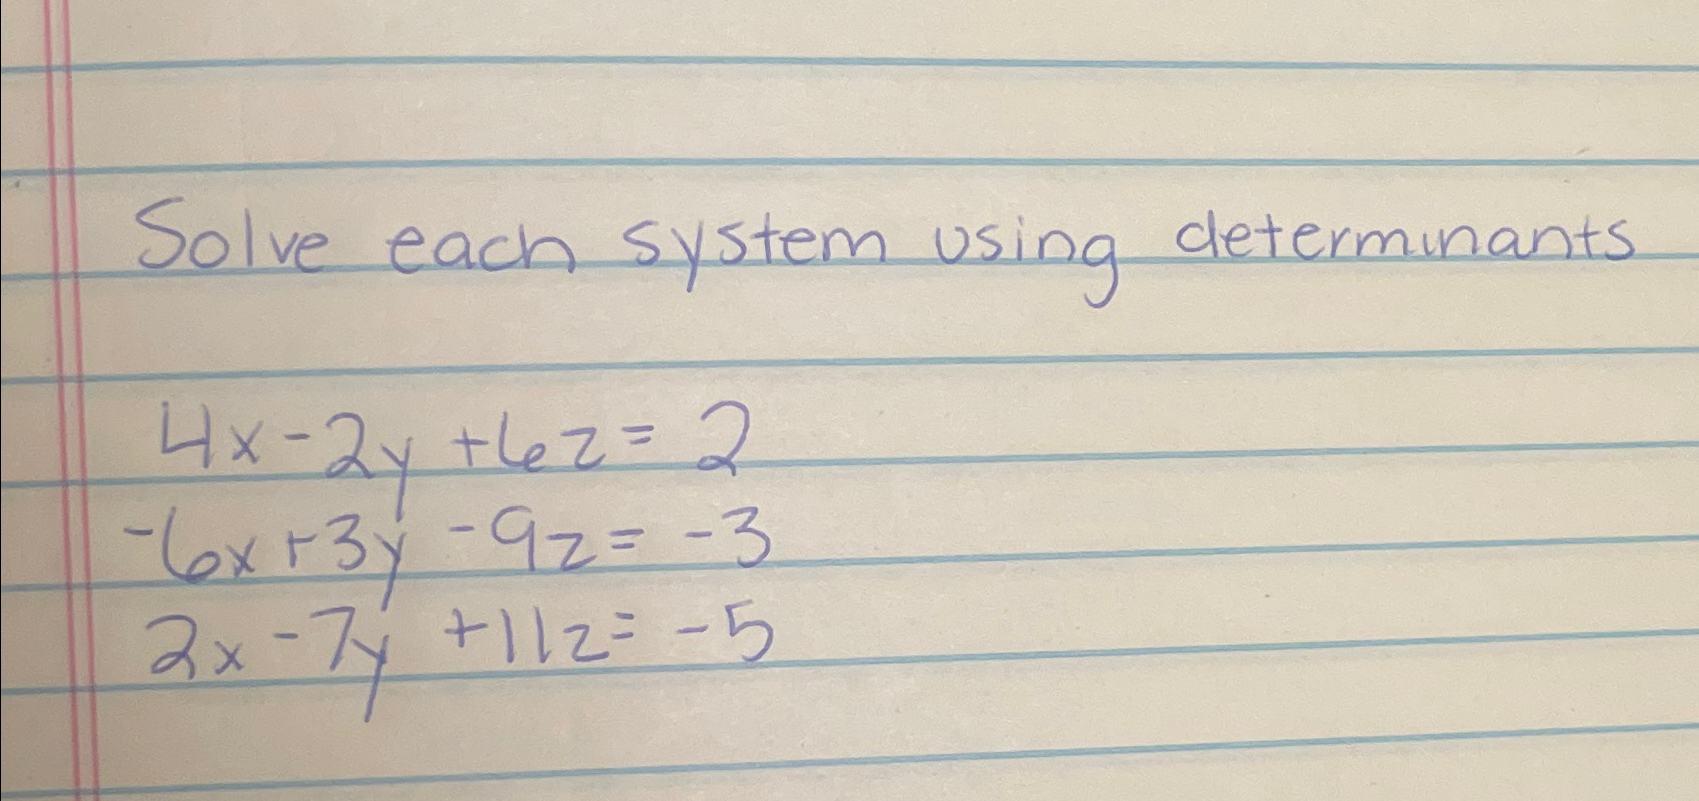 Solve each system using determinants
4x-2y+6z=2
-6x+3y-9z=-3
2x-7y+11z=-5